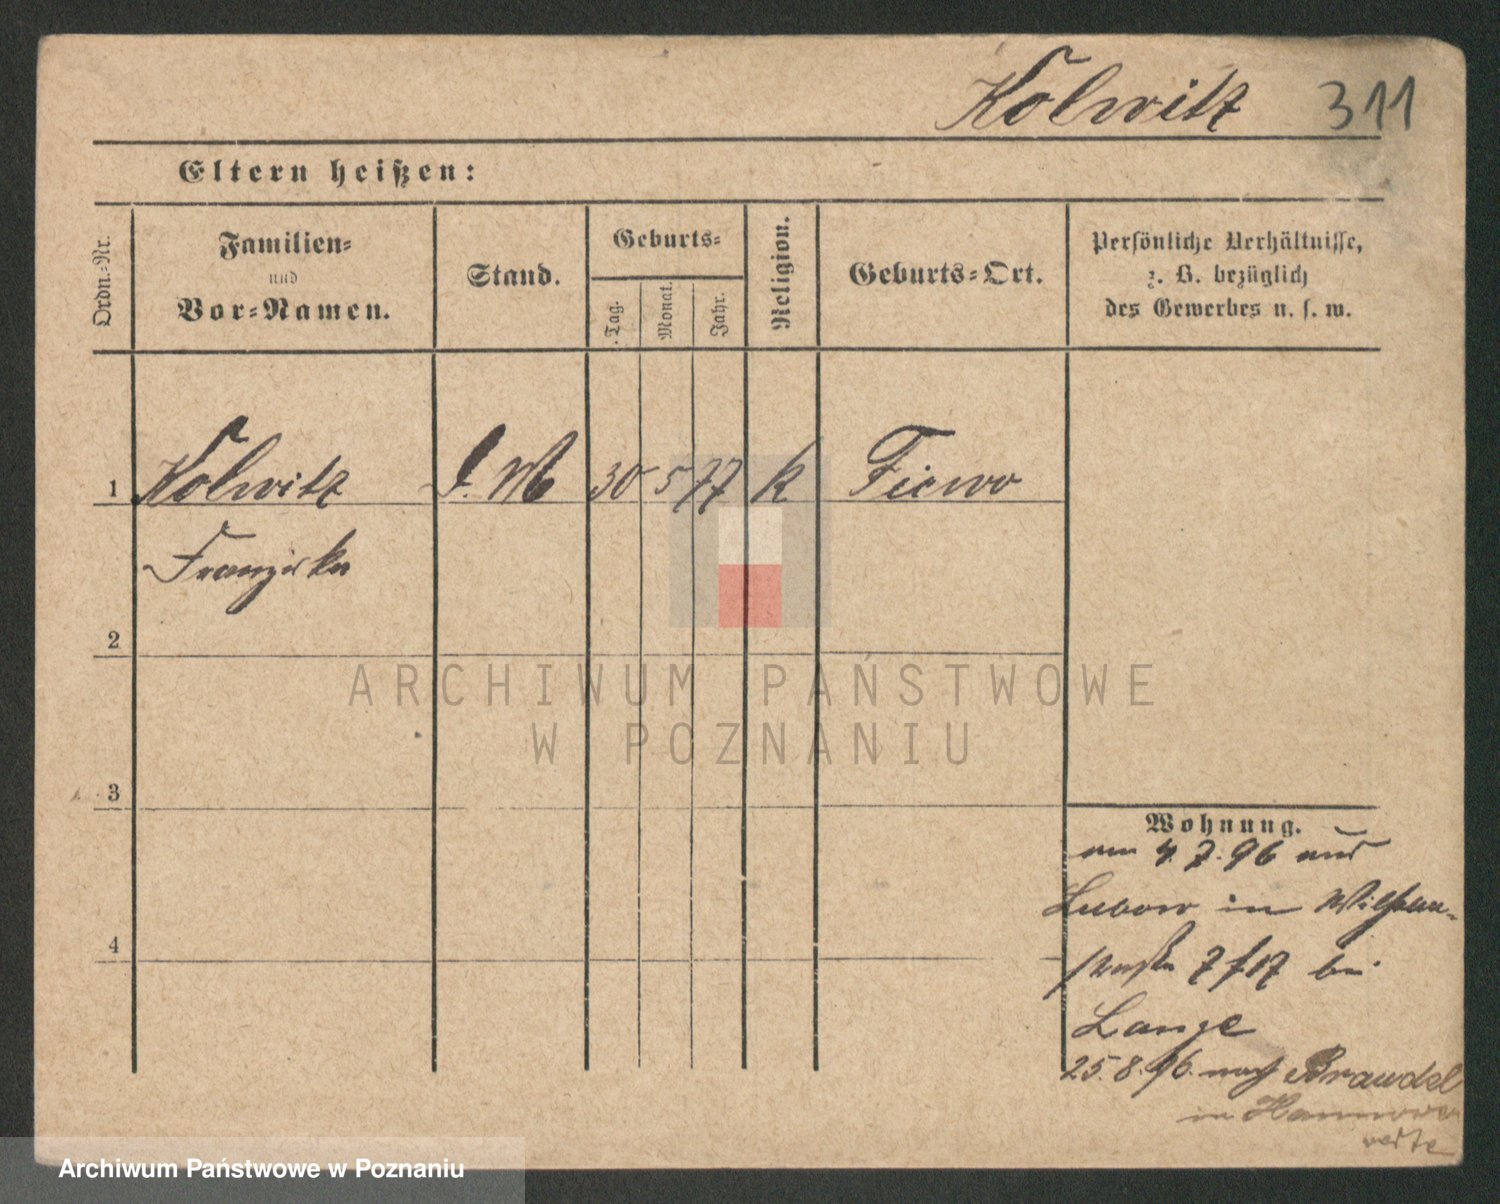 Kolwitz 311
Eltern heißen:
Ordn.-Nr.
Familien-
und
Vor-Namen.
Stand.
Geburts-
Tag.
Monat.
Jahr.
Religion.
Geburts-Ort.
Persönliche Verhältnisse,
z. B. bezüglich
des Gewerbes u. s. w.
1 Kolwitz D. M 30 5 77 k Fiewo
Franziska
2
3
4
Wohnung.
am 4.7.96 aus
Lubow in Wilhelm-
straße 7 bei
Lange
25.8.96. nach
in Hannover
ARCHIWUM PAŃSTWOWE
W POZNANIU
Archiwum Państwowe w Poznaniu